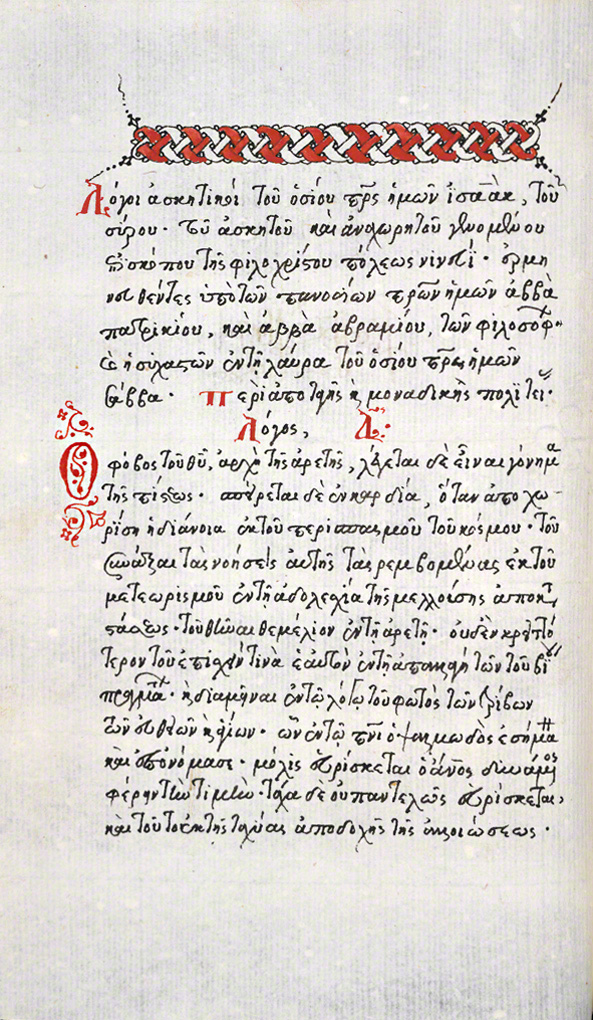 Λόγοι ἀσκητικοὶ τοῦ ὁσίου πρς ἡμῶν ἰσαὰκ, τοῦ
σύρου· τοῦ ἀσκητοῦ καὶ ἀναχωρητοῦ γενομένου
ἐπισκόπου τῆς φιλοχρίστου πόλεως νινευΐ· ἑρμη
νευθέντες ὑπὸ τῶν πανοσίων πρων ἡμῶν ἀββᾶ
πατρικίου, καὶ ἀββᾶ ἀβραμίου, τῶν φιλοσόφ
ἡσυχαστῶν ἐν τῇ λαύρα τοῦ ὁσίου πρς ἡμῶν
Σάββα· Περὶ ἀποταγῆς κ μοναδικῆς πολιτεί
Λόγος, Α:
Ὁ φόβος τοῦ θυ, ἀρχὴ τῆς ἀρετῆς, λέγεται δὲ εἶναι γόνημα
τῆς πίστεως· σπείρεται δὲ ἐν καρδία, ὅταν ἀποχω
ρίση ἡ διάνοια ἐκ τοῦ περισπασμοῦ τοῦ κόσμου· τοῦ
συνάξαι τὰς νοήσεις αὐτῆς τὰς ρεμβομένας ἐκ τοῦ
μετεωρισμοῦ ἐν τῇ ἀδολεσχία τῆς μελλούσης ἀποκατ
στάσεως· τοῦ θεῖναι θεμέλιον ἐν τῇ ἀρετῇ· οὐδὲν κρειττό
τερον τοῦ ἐπισχεῖν τινὰ ἑαυτὸν ἐν τῇ ἀπαλλαγῇ τῶν τοῦ βί
πραγμάτ· κ διαμεῖναι ἐν τῷ λόγω τοῦ φωτὸς τῶν τρίβων
τῶν εὐθειῶν κ ἁγίων· ὧν ἐν τῷ πνι ὁ ψαλμωδὸς ἐσήμα
καὶ ἐπονόμασε· μόλις εὑρίσκεται ὁ ἄνος δυνάμενος
φέρειν τὴν τιμὴν· τάχα δὲ οὐ παντελῶς εὑρίσκεται,
καὶ τοῦτο ἐκ τῆς ταχείας ἀποδοχῆς τῆς ἀλλοιώσεως·